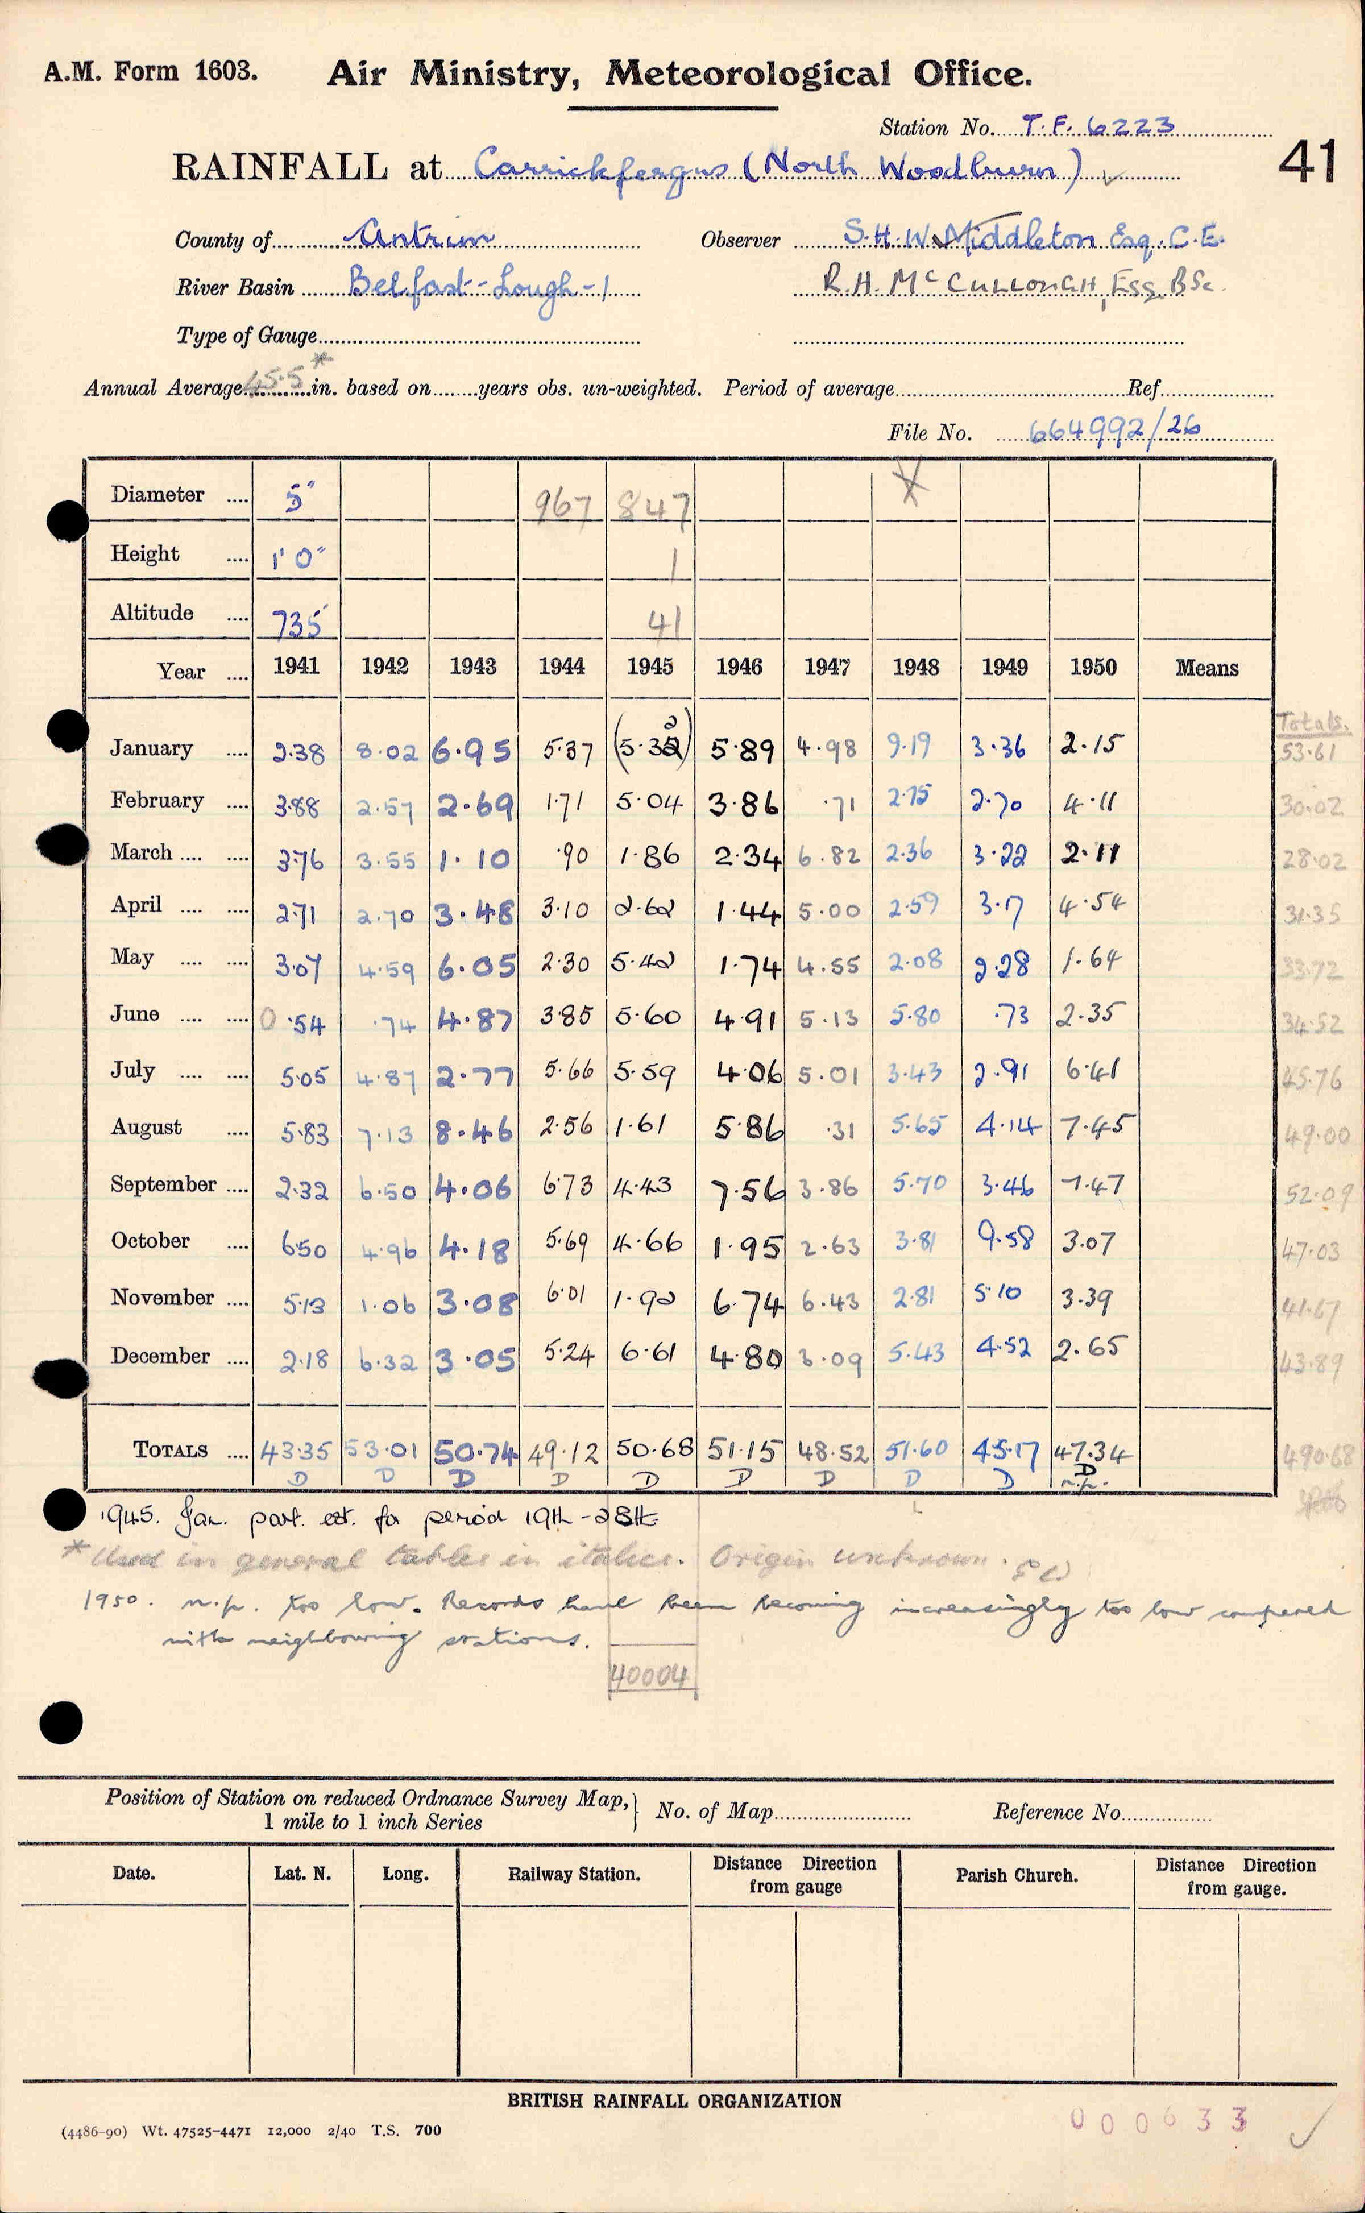 A.M. Form 1603. Air Ministry, Meteorological Office.
Station No. T.F. 6223
41
RAINFALL at Carrickfergus (North Woodburn) ✓
County of Antrim Observer S.H.W. Middleton Esq. C.E.
River Basin Belfast-Lough-1 R.H. McCULLOUGH, Esq. BSc.
Type of Gauge
Annual Average 45.5* in. based on years obs. un-weighted. Period of average Ref.
File No. 664992/26
Diameter .... 5" 967 847
Height .... 1' 0" 1
Altitude .... 735' 41
Year .... 1941 1942 1943 1944 1945 1946 1947 1948 1949 1950 Means
Totals.
January .... 2.38 8.02 6.95 5.37 (5.32) 5.89 4.98 9.19 3.36 2.15 53.61
February .... 3.88 2.57 2.69 1.71 5.04 3.86 .71 2.75 2.70 4.11 30.02
March .... .... 3.76 3.55 1.10 .90 1.86 2.34 6.82 2.36 3.22 2.11 28.02
April .... .... 2.71 2.70 3.48 3.10 2.62 1.44 5.00 2.59 3.17 4.54 31.35
May .... .... 3.07 4.59 6.05 2.30 5.42 1.74 4.55 2.08 2.28 1.64 33.72
June .... .... 0.54 .74 4.87 3.85 5.60 4.91 5.13 5.80 .73 2.35 34.52
July .... .... 5.05 4.87 2.77 5.66 5.59 4.06 5.01 3.43 2.91 6.41 45.76
August .... 5.83 7.13 8.46 2.56 1.61 5.86 .31 5.65 4.14 7.45 49.00
September .... 2.32 6.50 4.06 6.73 4.43 7.56 3.86 5.70 3.46 7.47 52.09
October .... 6.50 4.96 4.18 5.69 4.66 1.95 2.63 3.81 9.58 3.07 47.03
November .... 5.13 1.06 3.08 6.01 1.92 6.74 6.43 2.81 5.10 3.39 41.67
December .... 2.18 6.32 3.05 5.24 6.61 4.80 3.09 5.43 4.52 2.65 43.89
TOTALS .... 43.35 53.01 50.74 49.12 50.68 51.15 48.52 51.60 45.17 47.34 490.68
D D D D D D D D D D
n.p.
1945. Jan. part. est. for period 19th - 28th
*Used in general tables in italics. Origin unknown.
1950. n.p. too low. Records have been becoming increasingly too low compared
with neighbouring stations.
40004
Position of Station on reduced Ordnance Survey Map, 1 mile to 1 inch Series } No. of Map Reference No.
Date. Lat. N. Long. Railway Station. Distance Direction from gauge Parish Church. Distance Direction from gauge.
BRITISH RAINFALL ORGANIZATION
(4486-90) Wt. 47525-4471 12,000 2/40 T.S. 700
000633 ✓